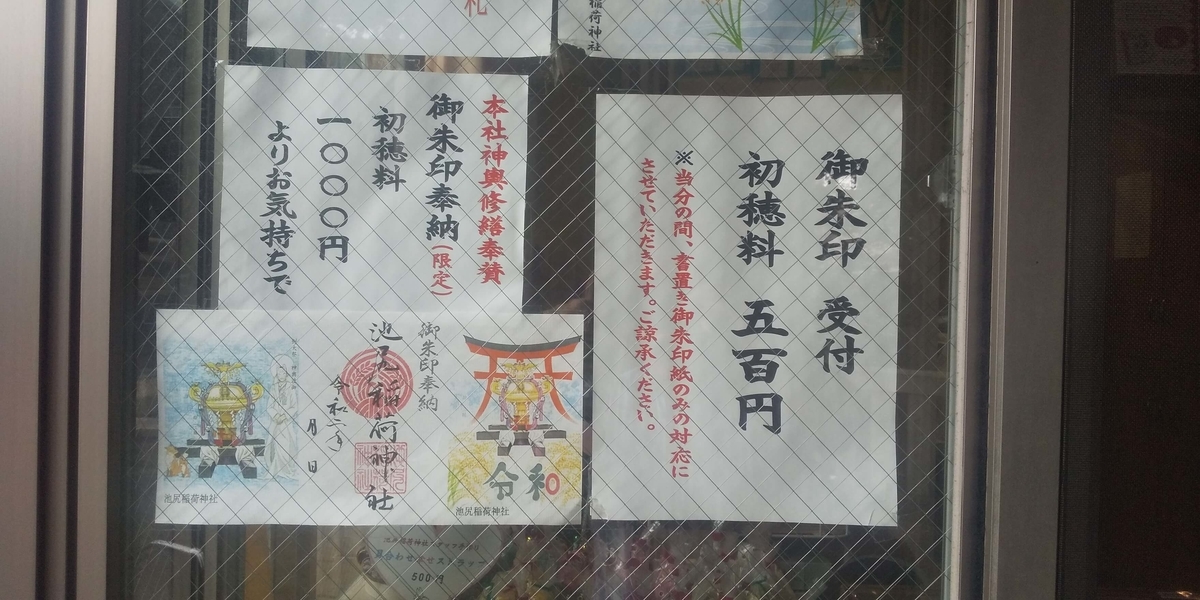 札
稲荷神社
御朱印　受付
初穂料　五百円
※当分の間、書置き御朱印紙のみの対応に
させていただきます。ご諒承ください。
本社神輿修繕奉賛
御朱印奉納(限定)
初穂料
一〇〇〇円
よりお気持ちで
令和
池尻稲荷神社
御朱印奉納
池尻稲荷神社
令和二年
月　日
池尻稲荷神社
500円